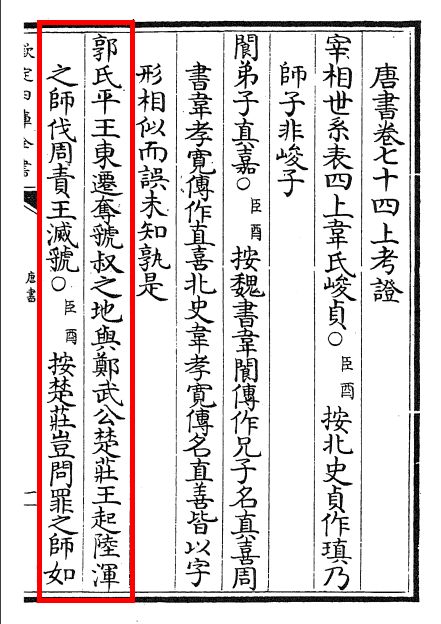 唐書卷七十四上考證
宰相世系表四上韋氏峻貞○臣酉按北史貞作瑱乃
師子非峻子
閬弟子真嘉○臣酉按魏書韋閬傳作兄子名真喜周
書韋孝寛傳作直喜北史韋孝寛傳名直善皆以字
形相似而誤未知孰是
郭氏平王東遷奪虢叔之地與鄭武公楚莊王起陸渾
之師伐周責王滅虢○臣酉按楚莊豈問罪之師如
欽定四庫全書
唐書
二